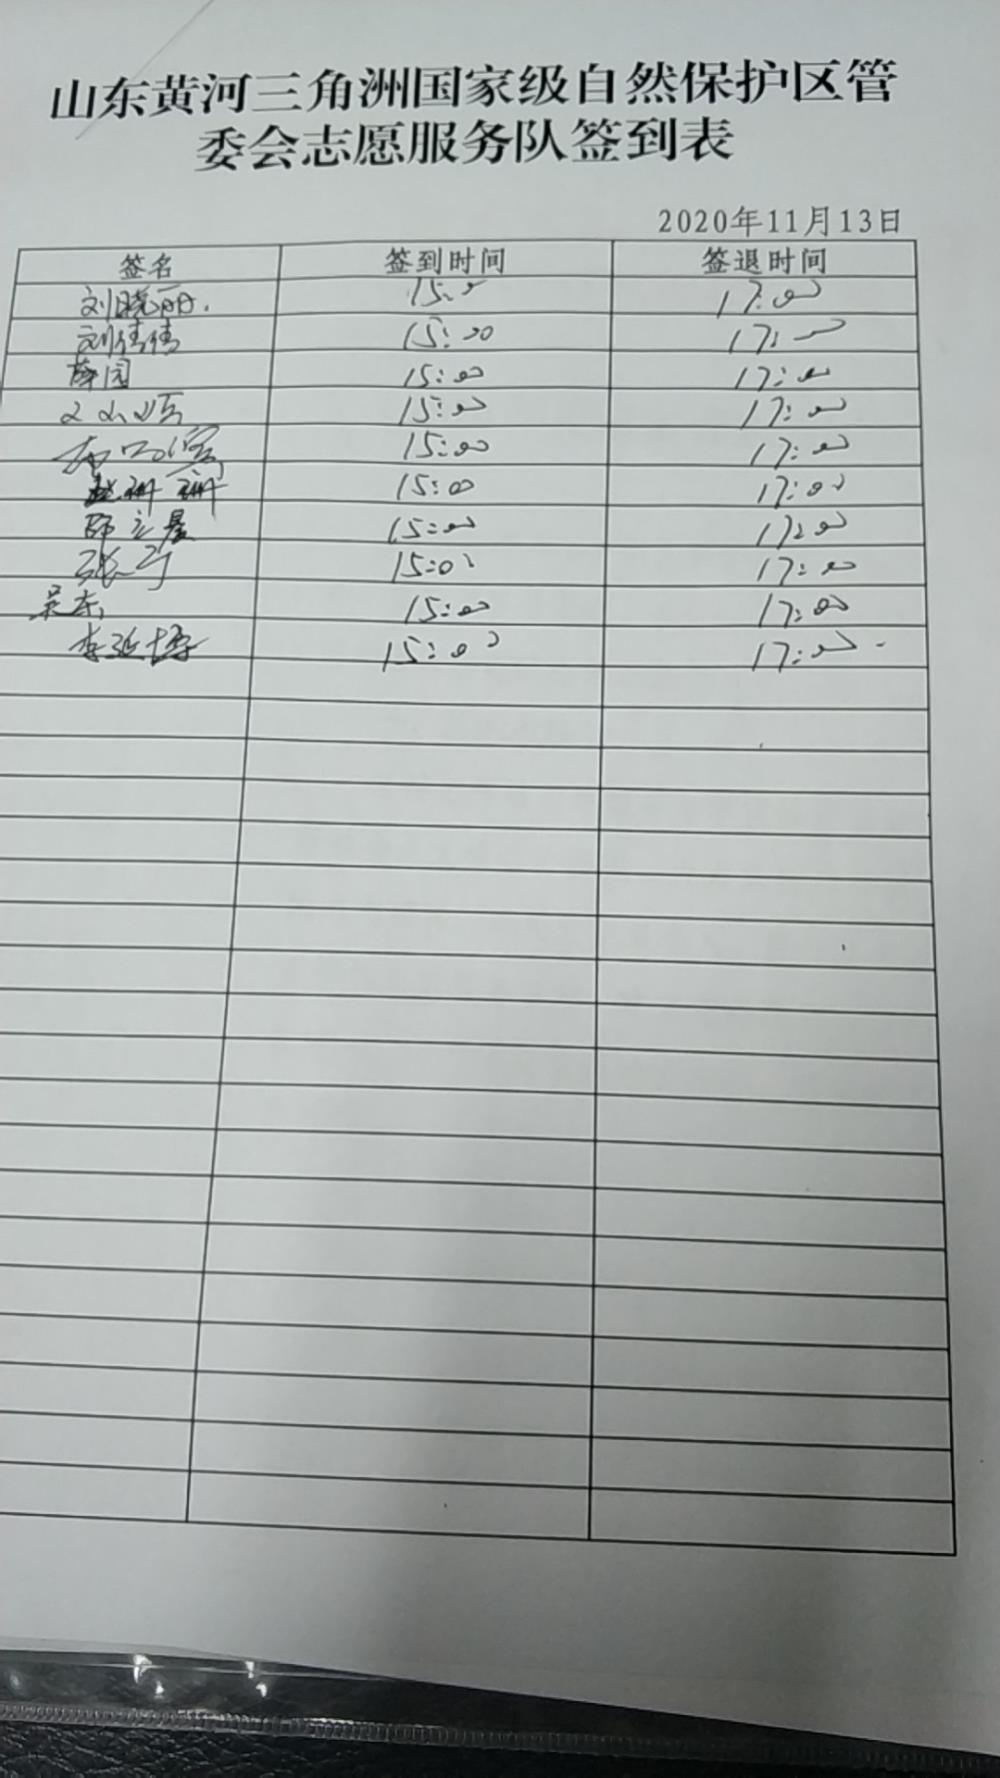 山东黄河三角洲国家级自然保护区管
委会志愿服务队签到表
2020年11月13日
签名 签到时间 签退时间
刘晓丽. 15:00 17:00
刘倩倩 15:00 17:00
薛园 15:00 17:00
15:00 17:00
15:00 17:00
赵珊珊 15:00 17:00
邵立晨 15:00 17:00
张宁 15:00 17:00
吴东 15:00 17:00
李延博 15:00 17:00